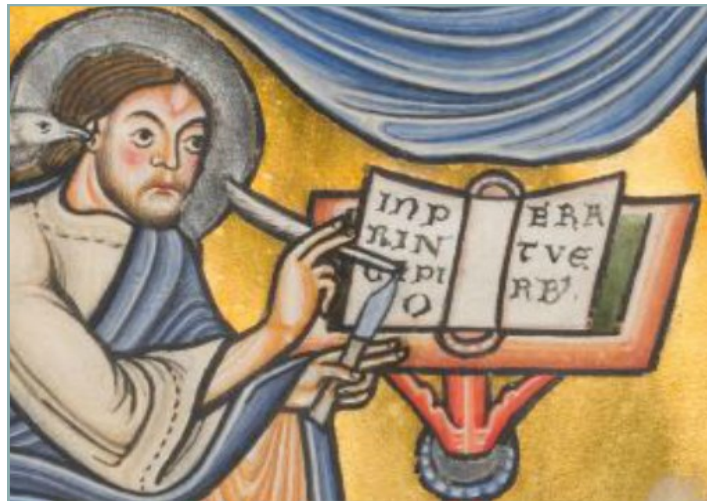 INP
RIN
CIPI
O
ERA
TVE
RB'.